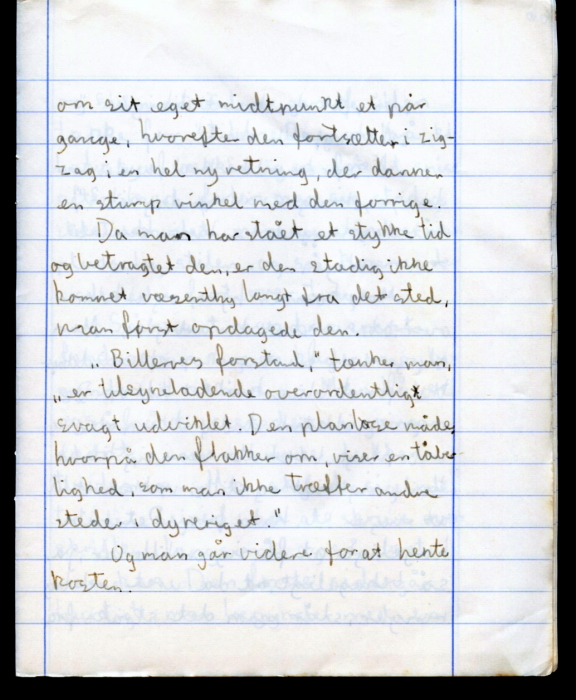 om sit eget midtpunkt et pår
gange, hvorefter den fortsætter i zig-
zag i en hel ny retning, der danner
en stump vinkel med den forrige.
Da man har stået et stykke tid
og betragtet den, er den stadig ikke
kommet væsentlig langt fra det sted,
man først opdagede den.
"Billernes forstad," tænker man,
"er tilsyneladende overordentligt
svagt udviklet. Den planløse måde,
hvorpå den flakker om, viser en tåbe-
lighed, som man ikke træffer andre
steder i dyreriget."
Og man går videre for at hente
kosten.